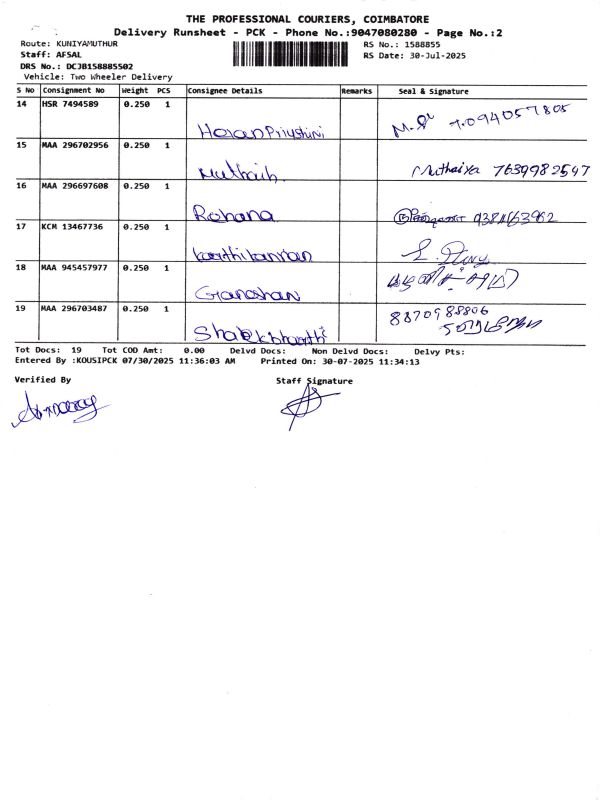 THE PROFESSIONAL COURIERS, COIMBATORE
Delivery Runsheet - PCK - Phone No.:9047080280 - Page No.:2
Route: KUNIYAMUTHUR
RS No.: 1588855
Staff: AFSAL
RS Date: 30-Jul-2025
DRS No.: DCJB158885502
Vehicle: Two Wheeler Delivery
S No Consignment No Weight PCS Consignee Details Remarks Seal & Signature
14 HSR 7494589 0.250 1
15 MAA 296702956 0.250 1 Muthaih. Muthaiya 7639982597
16 MAA 296697608 0.250 1 Rohana
17 KCM 13467736 0.250 1
18 MAA 945457977 0.250 1
19 MAA 296703487 0.250 1 8870988806
Tot Docs: 19 Tot COD Amt: 0.00 Delvd Docs: Non Delvd Docs: Delvy Pts:
Entered By :KOUSIPCK 07/30/2025 11:36:03 AM Printed On: 30-07-2025 11:34:13
Verified By Staff Signature